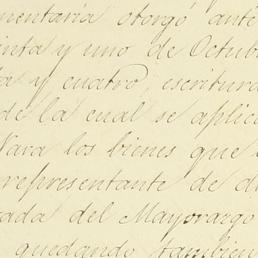 mentaria otorgó ante
inta y uno de Octub
ta y cuatro, escritura
de la cual se aplica
Vara los bienes que
representante de d
ada del Mayorazgo
quedando tambien